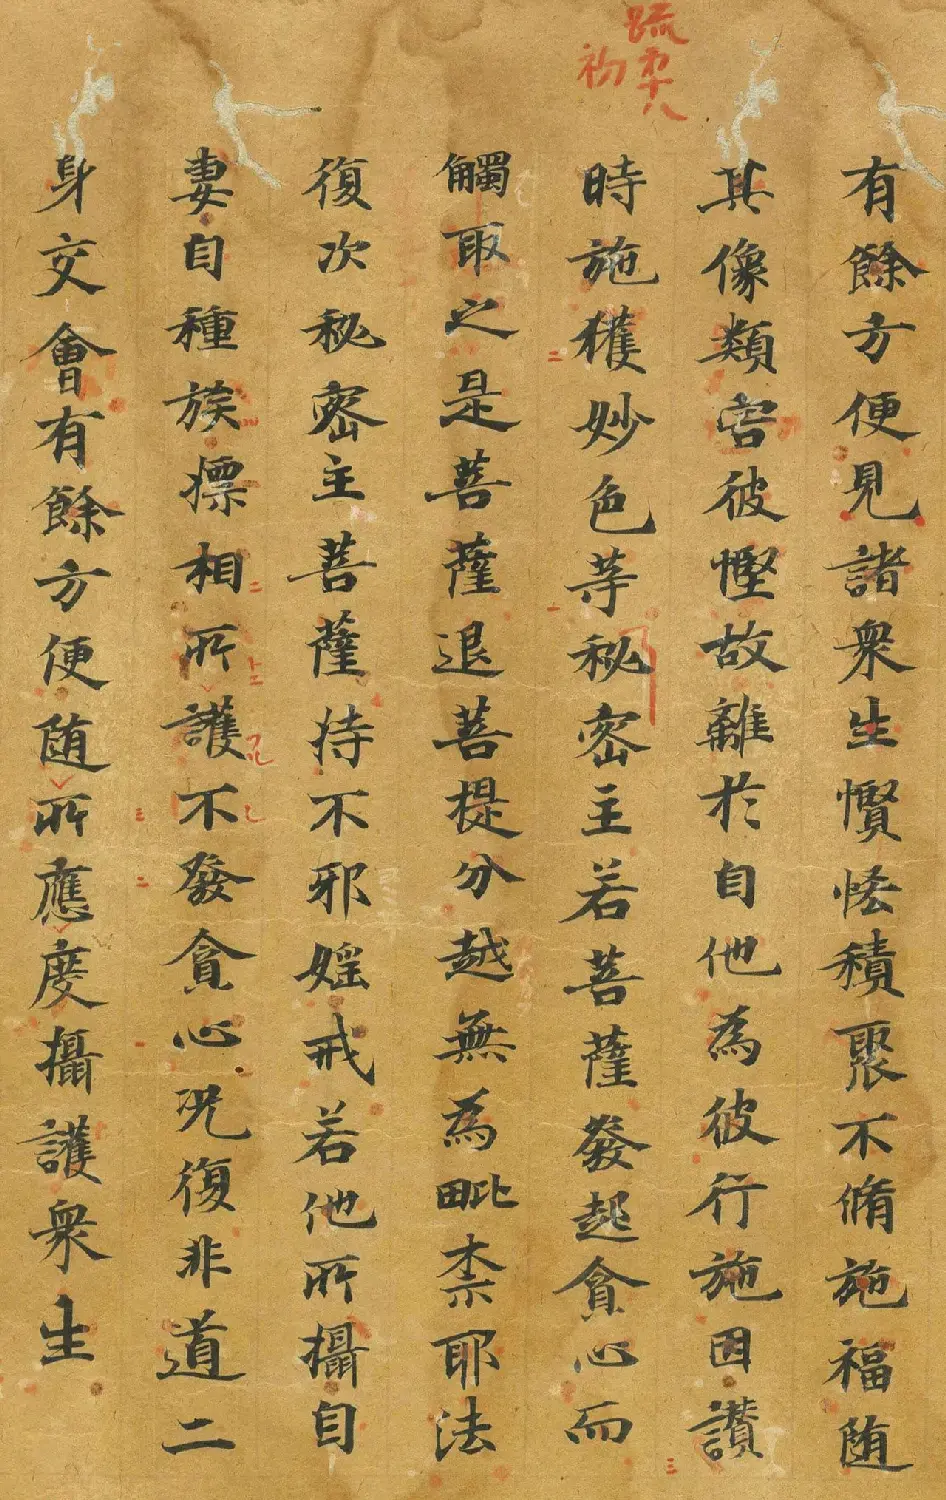 疏第十八
初
有餘方便見諸衆生慳悋積聚不脩施福随
其像類害彼慳故離於自他為彼行施因讃
時施獲妙色等秘密主若菩薩發起貪心而
觸取之是菩薩退菩提分越無為毗柰耶法
復次秘密主菩薩持不邪婬戒若他所攝自
妻自種族摽相所護不發貪心况復非道二
身交會有餘方便随所應度攝護衆生